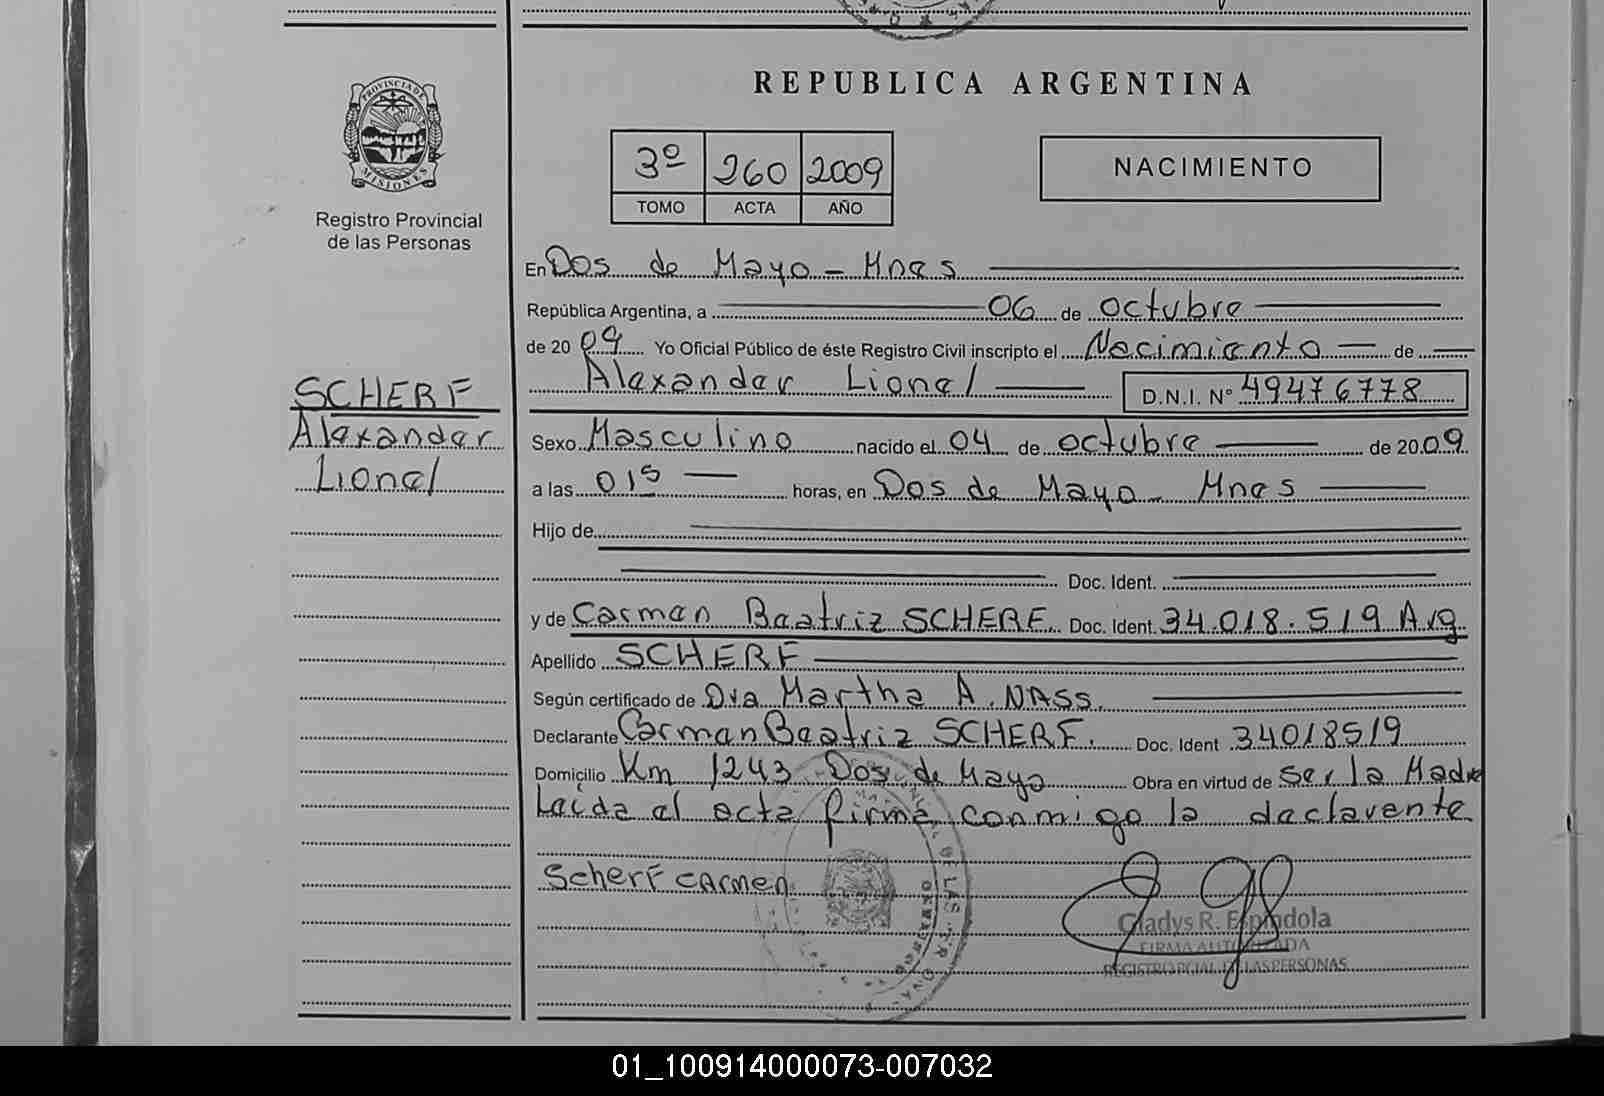 REPUBLICA ARGENTINA
PROVINCIA DE
MISIONES
Registro Provincial
de las Personas
3º 260 2009
TOMO ACTA AÑO
NACIMIENTO
En Dos de Mayo - Mnes
República Argentina, a 06 de octubre
de 20 09 Yo Oficial Público de éste Registro Civil inscripto el Nacimiento de
Alexander Lionel D.N.I. Nº 49476778
SCHERF
Alexander
Lionel
Sexo Masculino nacido el 04 de octubre de 20 09
a las 01 15 horas, en Dos de Mayo - Mnes
Hijo de
Doc. Ident.
y de Carmen Beatriz SCHERF Doc. Ident. 34.018.519 Arg
Apellido SCHERF
Según certificado de Dra Martha A. NASS.
Declarante Carmen Beatriz SCHERF. Doc. Ident 34018519
Domicilio Km 1243 Dos de Mayo Obra en virtud de ser la Madre
Leída el acta firma conmigo la declarente
Scherf Carmen
Gladys R. Espindola
FIRMA AUTORIZADA
REGISTRO PCIAL DE LAS PERSONAS
01_100914000073-007032